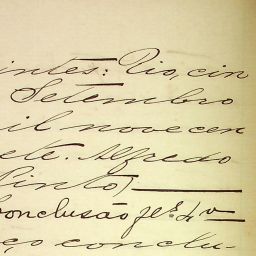 intes: Rio, cin
Setembro
il nove cen
ete. Alfredo
Pinto)
Conclusão fl s. 4 v
ço conclu-